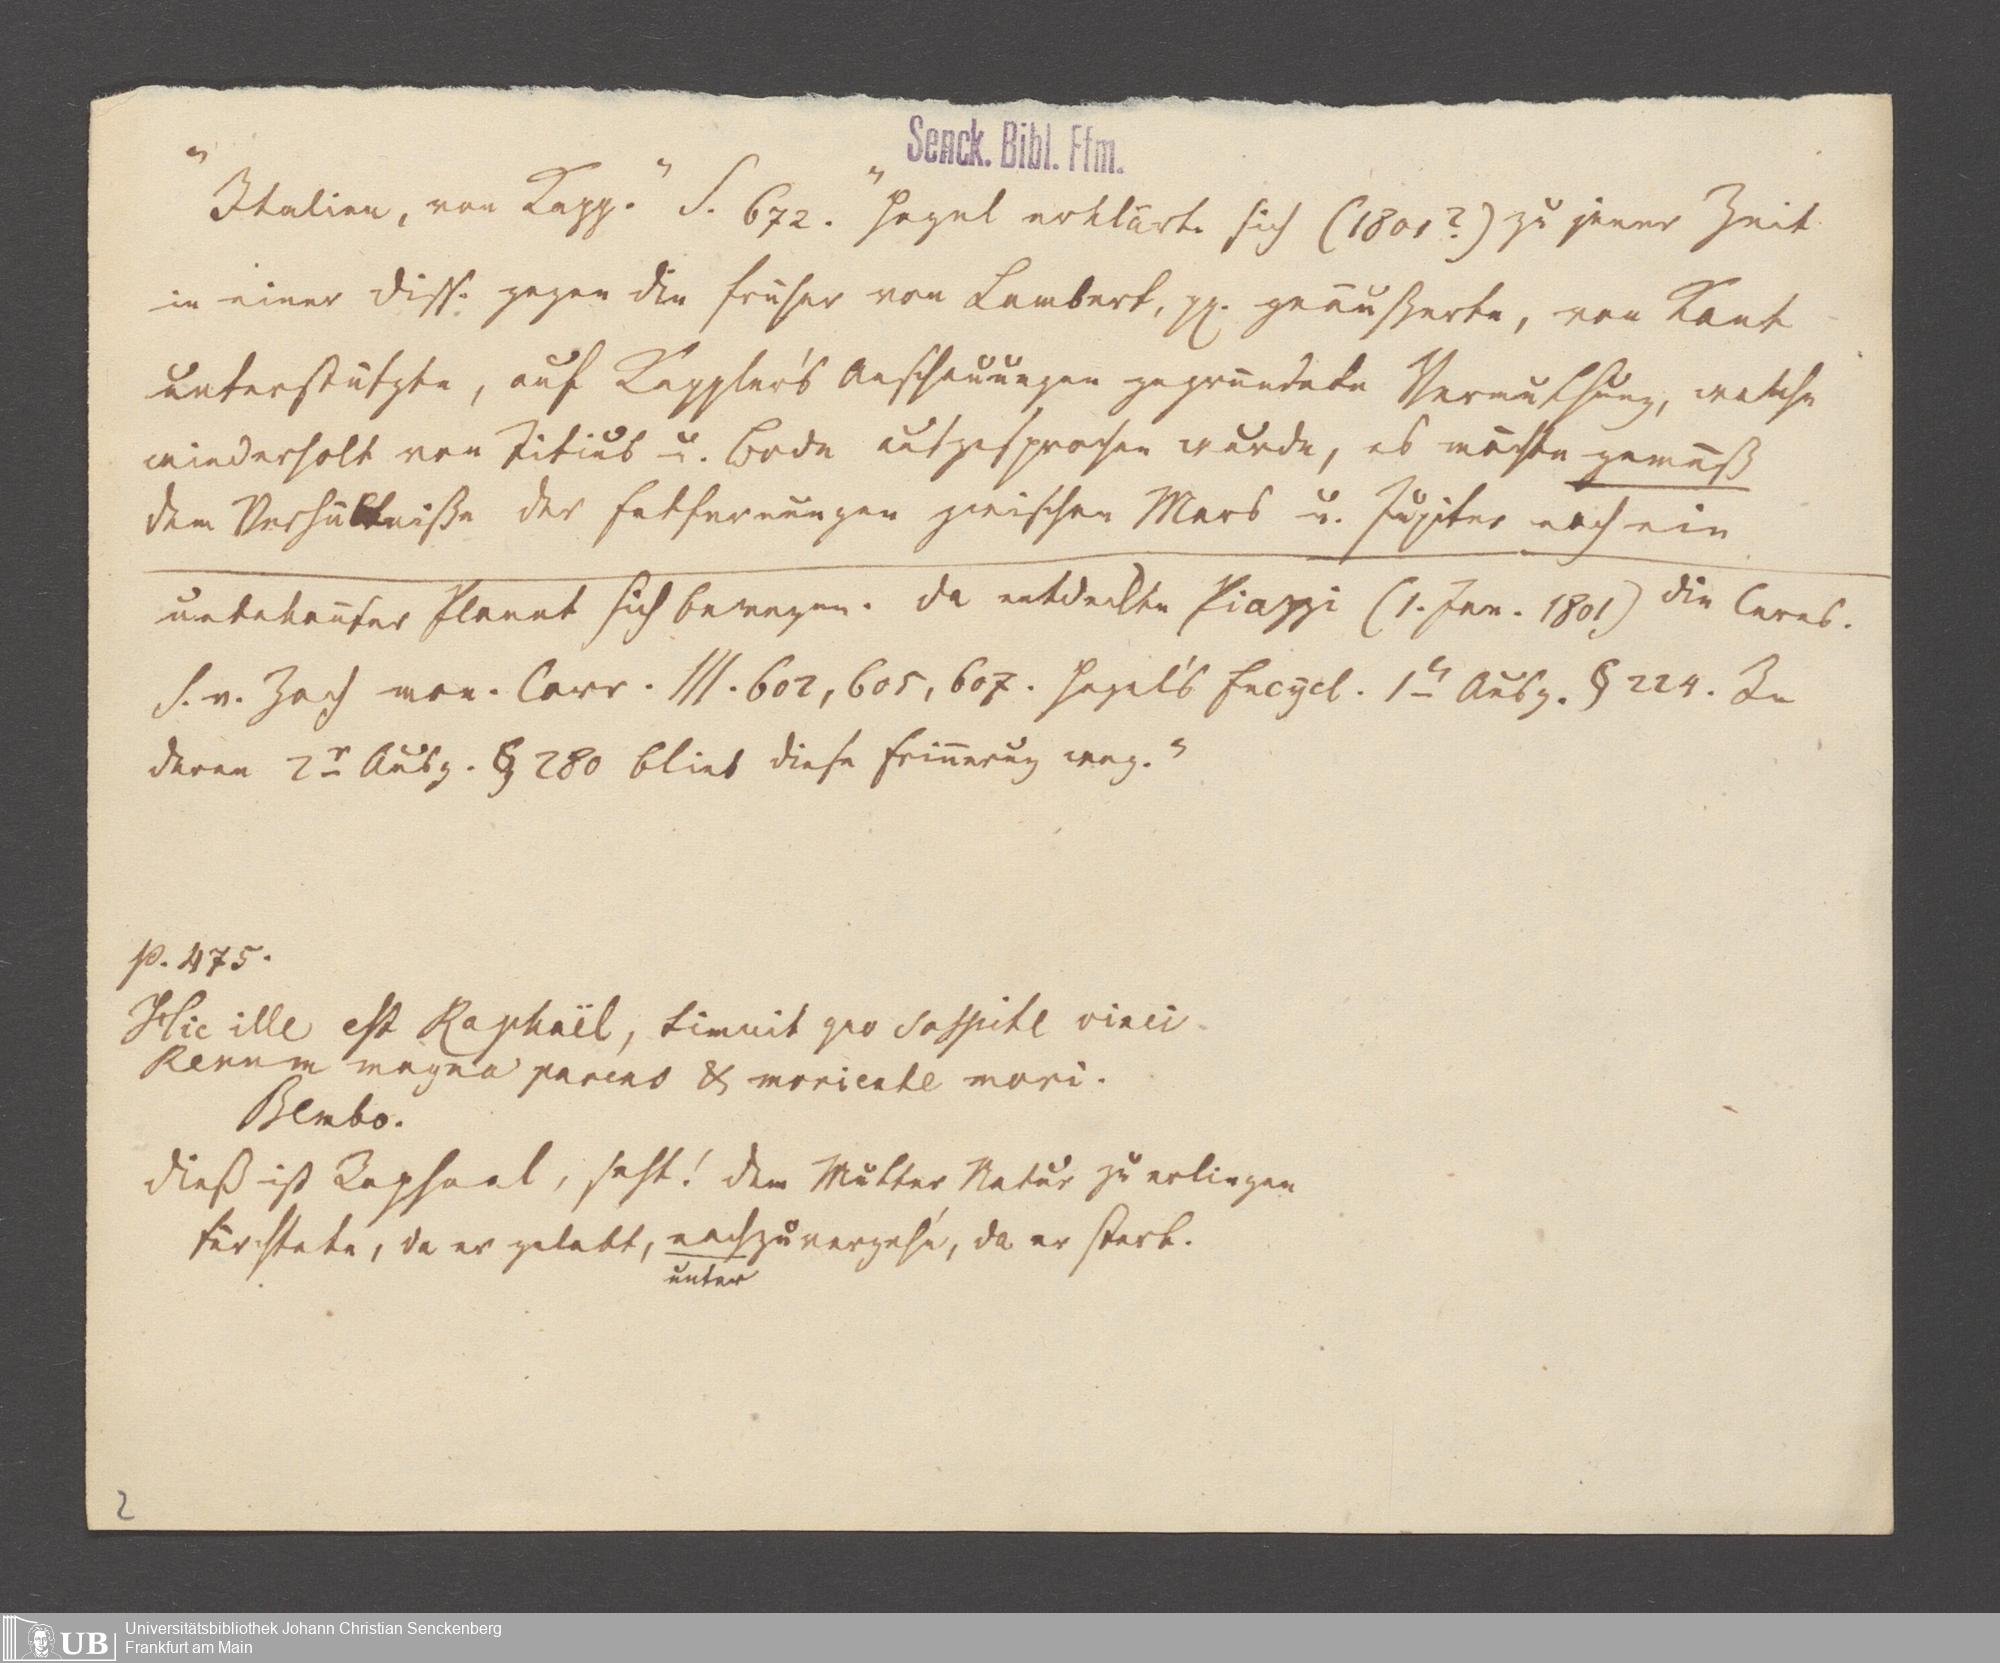 Senck. Bibl. Ffm.
"Italien, von Kapp." S. 672. "Hegel erklärte sich (1801?) zu jener Zeit
in einer Diss. gegen die früher von Lambert, pp. geäußerte, von Kant
unterstützte, auf Keppler's Anschauungen gegründete Vermuthung, welche
wiederholt von Titius u. Bode ausgesprochen wurde, es möchte gemäß
dem Verhältniße der Entfernungen zwischen Mars u. Jupiter noch ein
unbekannter Planet sich bewegen. Da entdeckte Piazzi (1. Jan. 1801) die Ceres.
S. v. Zach mon. Corr. III. 602, 605, 607. Hegel's Encycl. 1e Ausg. § 224. In
deren 2r Ausg. § 280 blieb diese Erinnerug weg."
p. 475.
Hic ille est Raphaël, timuit quo sospite vinci
Rerum magna parens & moriente mori.
Bembo.
Dieß ist Raphael, seht! dem Mutter Natur zu erliegen
fürchtete, da er gelebt, nachzuvergehn, da er starb.
unter
2
UB
Universitätsbibliothek Johann Christian Senckenberg
Frankfurt am Main